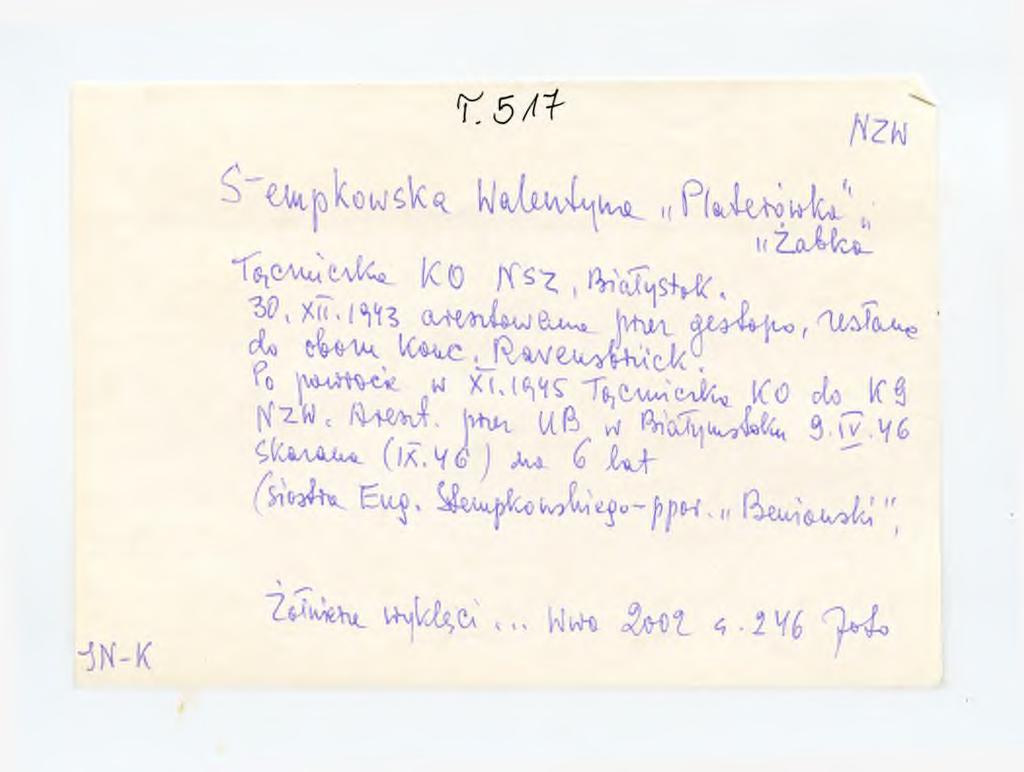 T. 517
NZW
Stempkowska Walentyna „Platerówka”,
„Żabka”
Łączniczka KO NSZ, Białystok.
30. XII. 1943 aresztowana przez gestapo, zesłana
do obozu konc. Ravensbrück.
Po powrocie w XI. 1945 Łączniczka KO do KG
NZW. Areszt. przez UB w Białymstoku 9. IV. 46
skazana (IX. 46) na 6 lat
(siostra Eug. Stempkowskiego - ppor. „Beniowski”,
Żołnierze wyklęci ... Wwa 2002 s. 246 foto
JN-K